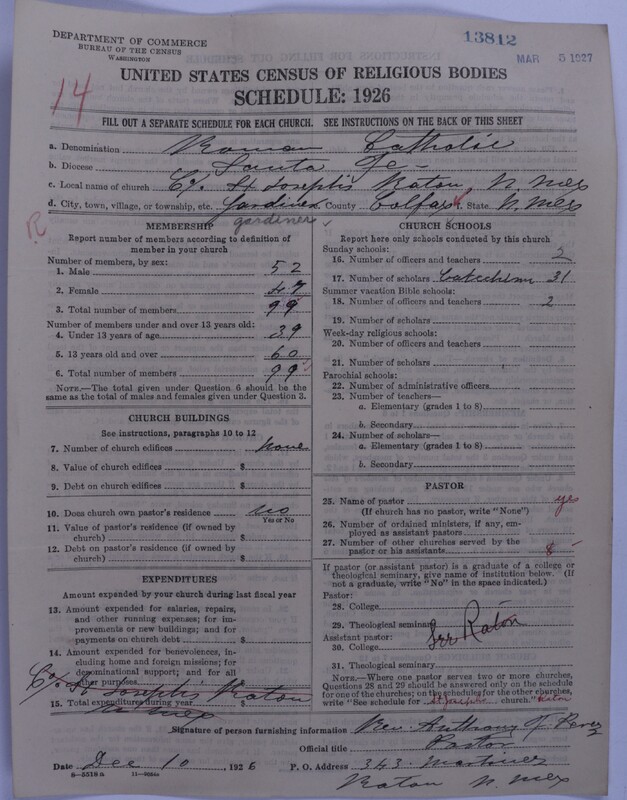 DEPARTMENT OF COMMERCE
BUREAU OF THE CENSUS
WASHINGTON
13812
MAR 5 1927
14
UNITED STATES CENSUS OF RELIGIOUS BODIES
SCHEDULE: 1926
FILL OUT A SEPARATE SCHEDULE FOR EACH CHURCH. SEE INSTRUCTIONS ON THE BACK OF THIS SHEET
a. Denomination Roman Catholic
b. Diocese Santa Fe
c. Local name of church C/o St Joseph's Raton, N. Mex
d. City, town, village, or township, etc. Gardiner County Colfax State N. Mex
R
gardiner
MEMBERSHIP
Report number of members according to definition of member in your church
Number of members, by sex:
1. Male 52
2. Female 47
3. Total number of members 99
Number of members under and over 13 years old:
4. Under 13 years of age 39
5. 13 years old and over 60
6. Total number of members 99
NOTE.—The total given under Question 6 should be the same as the total of males and females given under Question 3.
CHURCH BUILDINGS
See instructions, paragraphs 10 to 12
7. Number of church edifices none
8. Value of church edifices $
9. Debt on church edifices $
10. Does church own pastor's residence no
Yes or No
11. Value of pastor's residence (if owned by church) $
12. Debt on pastor's residence (if owned by church) $
EXPENDITURES
Amount expended by your church during last fiscal year
13. Amount expended for salaries, repairs, and other running expenses; for improvements or new buildings; and for payments on church debt $
14. Amount expended for benevolences, including home and foreign missions; for denominational support; and for all other purposes
C/o St Joseph's Raton
15. Total expenditures during year $
N. Mex
CHURCH SCHOOLS
Report here only schools conducted by this church
Sunday schools:
16. Number of officers and teachers 2
17. Number of scholars Catechism 31
Summer vacation Bible schools:
18. Number of officers and teachers 2
19. Number of scholars
Week-day religious schools:
20. Number of officers and teachers
21. Number of scholars
Parochial schools:
22. Number of administrative officers
23. Number of teachers—
a. Elementary (grades 1 to 8)
b. Secondary
24. Number of scholars—
a. Elementary (grades 1 to 8)
b. Secondary
PASTOR
25. Name of pastor yes
(If church has no pastor, write "None")
26. Number of ordained ministers, if any, employed as assistant pastors
27. Number of other churches served by the pastor or his assistants 8
If pastor (or assistant pastor) is a graduate of a college or theological seminary, give name of institution below. (If not a graduate, write "No" in the space indicated.)
Pastor:
28. College
29. Theological seminary
Raton
Assistant pastor:
30. College
31. Theological seminary
NOTE.—Where one pastor serves two or more churches, Questions 28 and 29 should be answered only on the schedule for one of the churches; on the schedules for the other churches, write "See schedule for St Joseph's church." Raton
Signature of person furnishing information Rev. Anthony J.
Official title Pastor
Date Dec 10 1926 P. O. Address 343 Martinez
8—5518a
Raton N. Mex